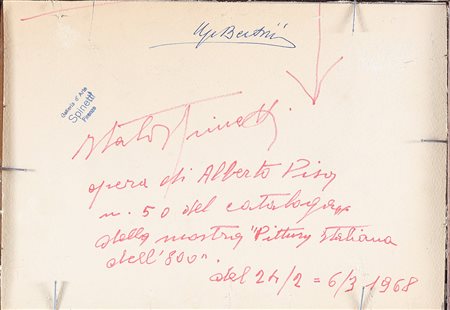 Ugo Bertini
Galleria d'Arte
Spinetti
Firenze
Italo Spinetti
opera di Alberto Pisa
n. 50 del catalogo
della mostra "Pittura Italiana
dell'800".
dal 24/2 = 6/3 1968